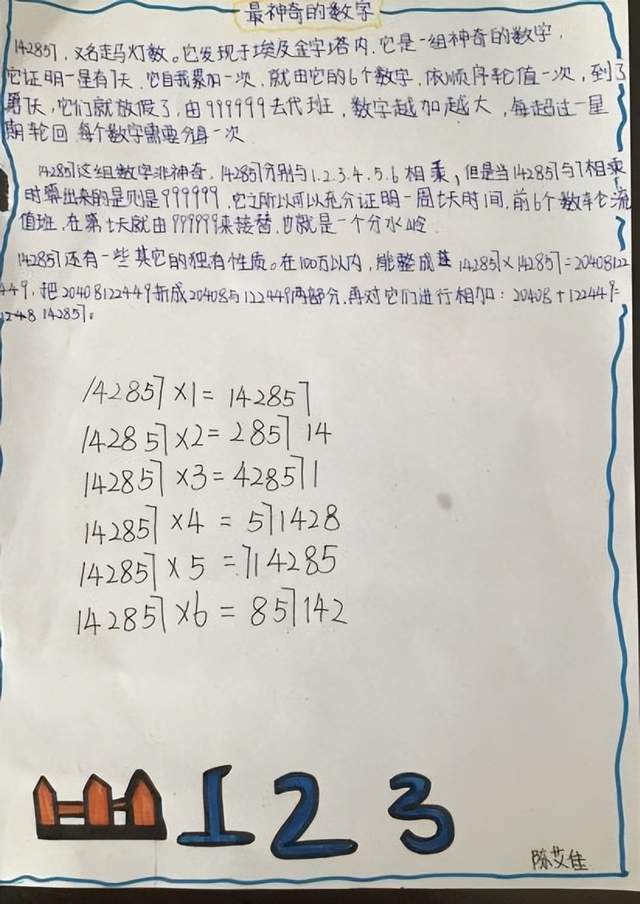 最神奇的数字
142857，又名走马灯数。它发现于埃及金字塔内，它是一组神奇的数字，
它证明一星有7天，它自我累加一次，就由它的6个数字，依顺序轮值一次，到了
第7天，它们就放假了，由999999去代班，数字越加越大，每超过一星
期轮回，每个数字需要分身一次
142857这组数字非神奇，142857分别与1.2.3.4.5.6相乘，但是当142857与7相乘
时乘出来的是见是999999，它之所以可以充分证明一周七天时间，前6个数车仑流
值班，在第七天就由999999来接替，也就是一个分水岭
142857还有一些其它的独有性质。在100万以内，能整成 142857×142857=20408122
449，把20408122449折成20408与122449两部分，再对它们进行相加：20408+122449=
142857。
142857×1=142857
142857×2=285714
142857×3=428571
142857×4=571428
142857×5=714285
142857×6=857142
1 2 3
陈艾佳